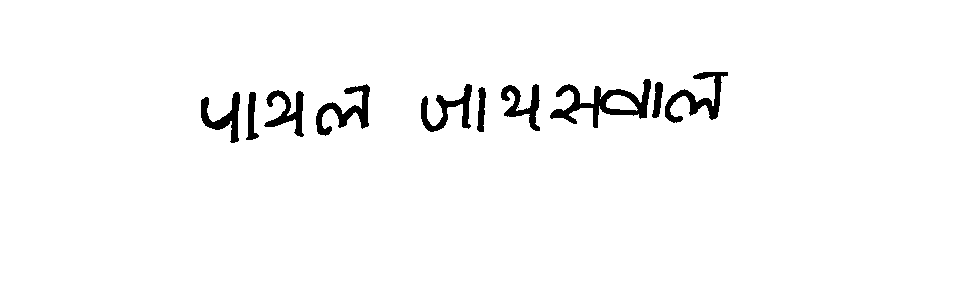 पायल जायसवाल